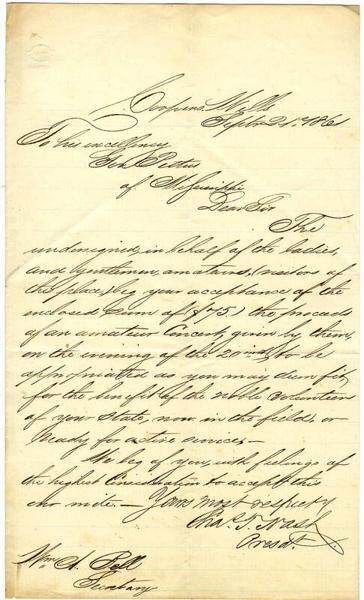 Coopers Wells
Sept 21st 1861
To his excellency
Gov Pettus
of Mississippi
Dear Sir
The
undersigned, in behalf of the ladies,
and gentlemen, amateurs, (visitors of
the place,) beg your acceptance of the
enclosed sum of ($75.) the proceeds
of an amateur Concert, given by them,
on the evening of the 20 inst, to be
appropriated as you may deem fit,
for the benefit of the noble volunteers
of your State, now in the field, or
ready for active service,—
We beg of you, with feelings of
the highest Consideration to accept this
our mite.—
Yours most respecty
Chas. T. Nash
Presdt.
Wm A. Bell
Secretary